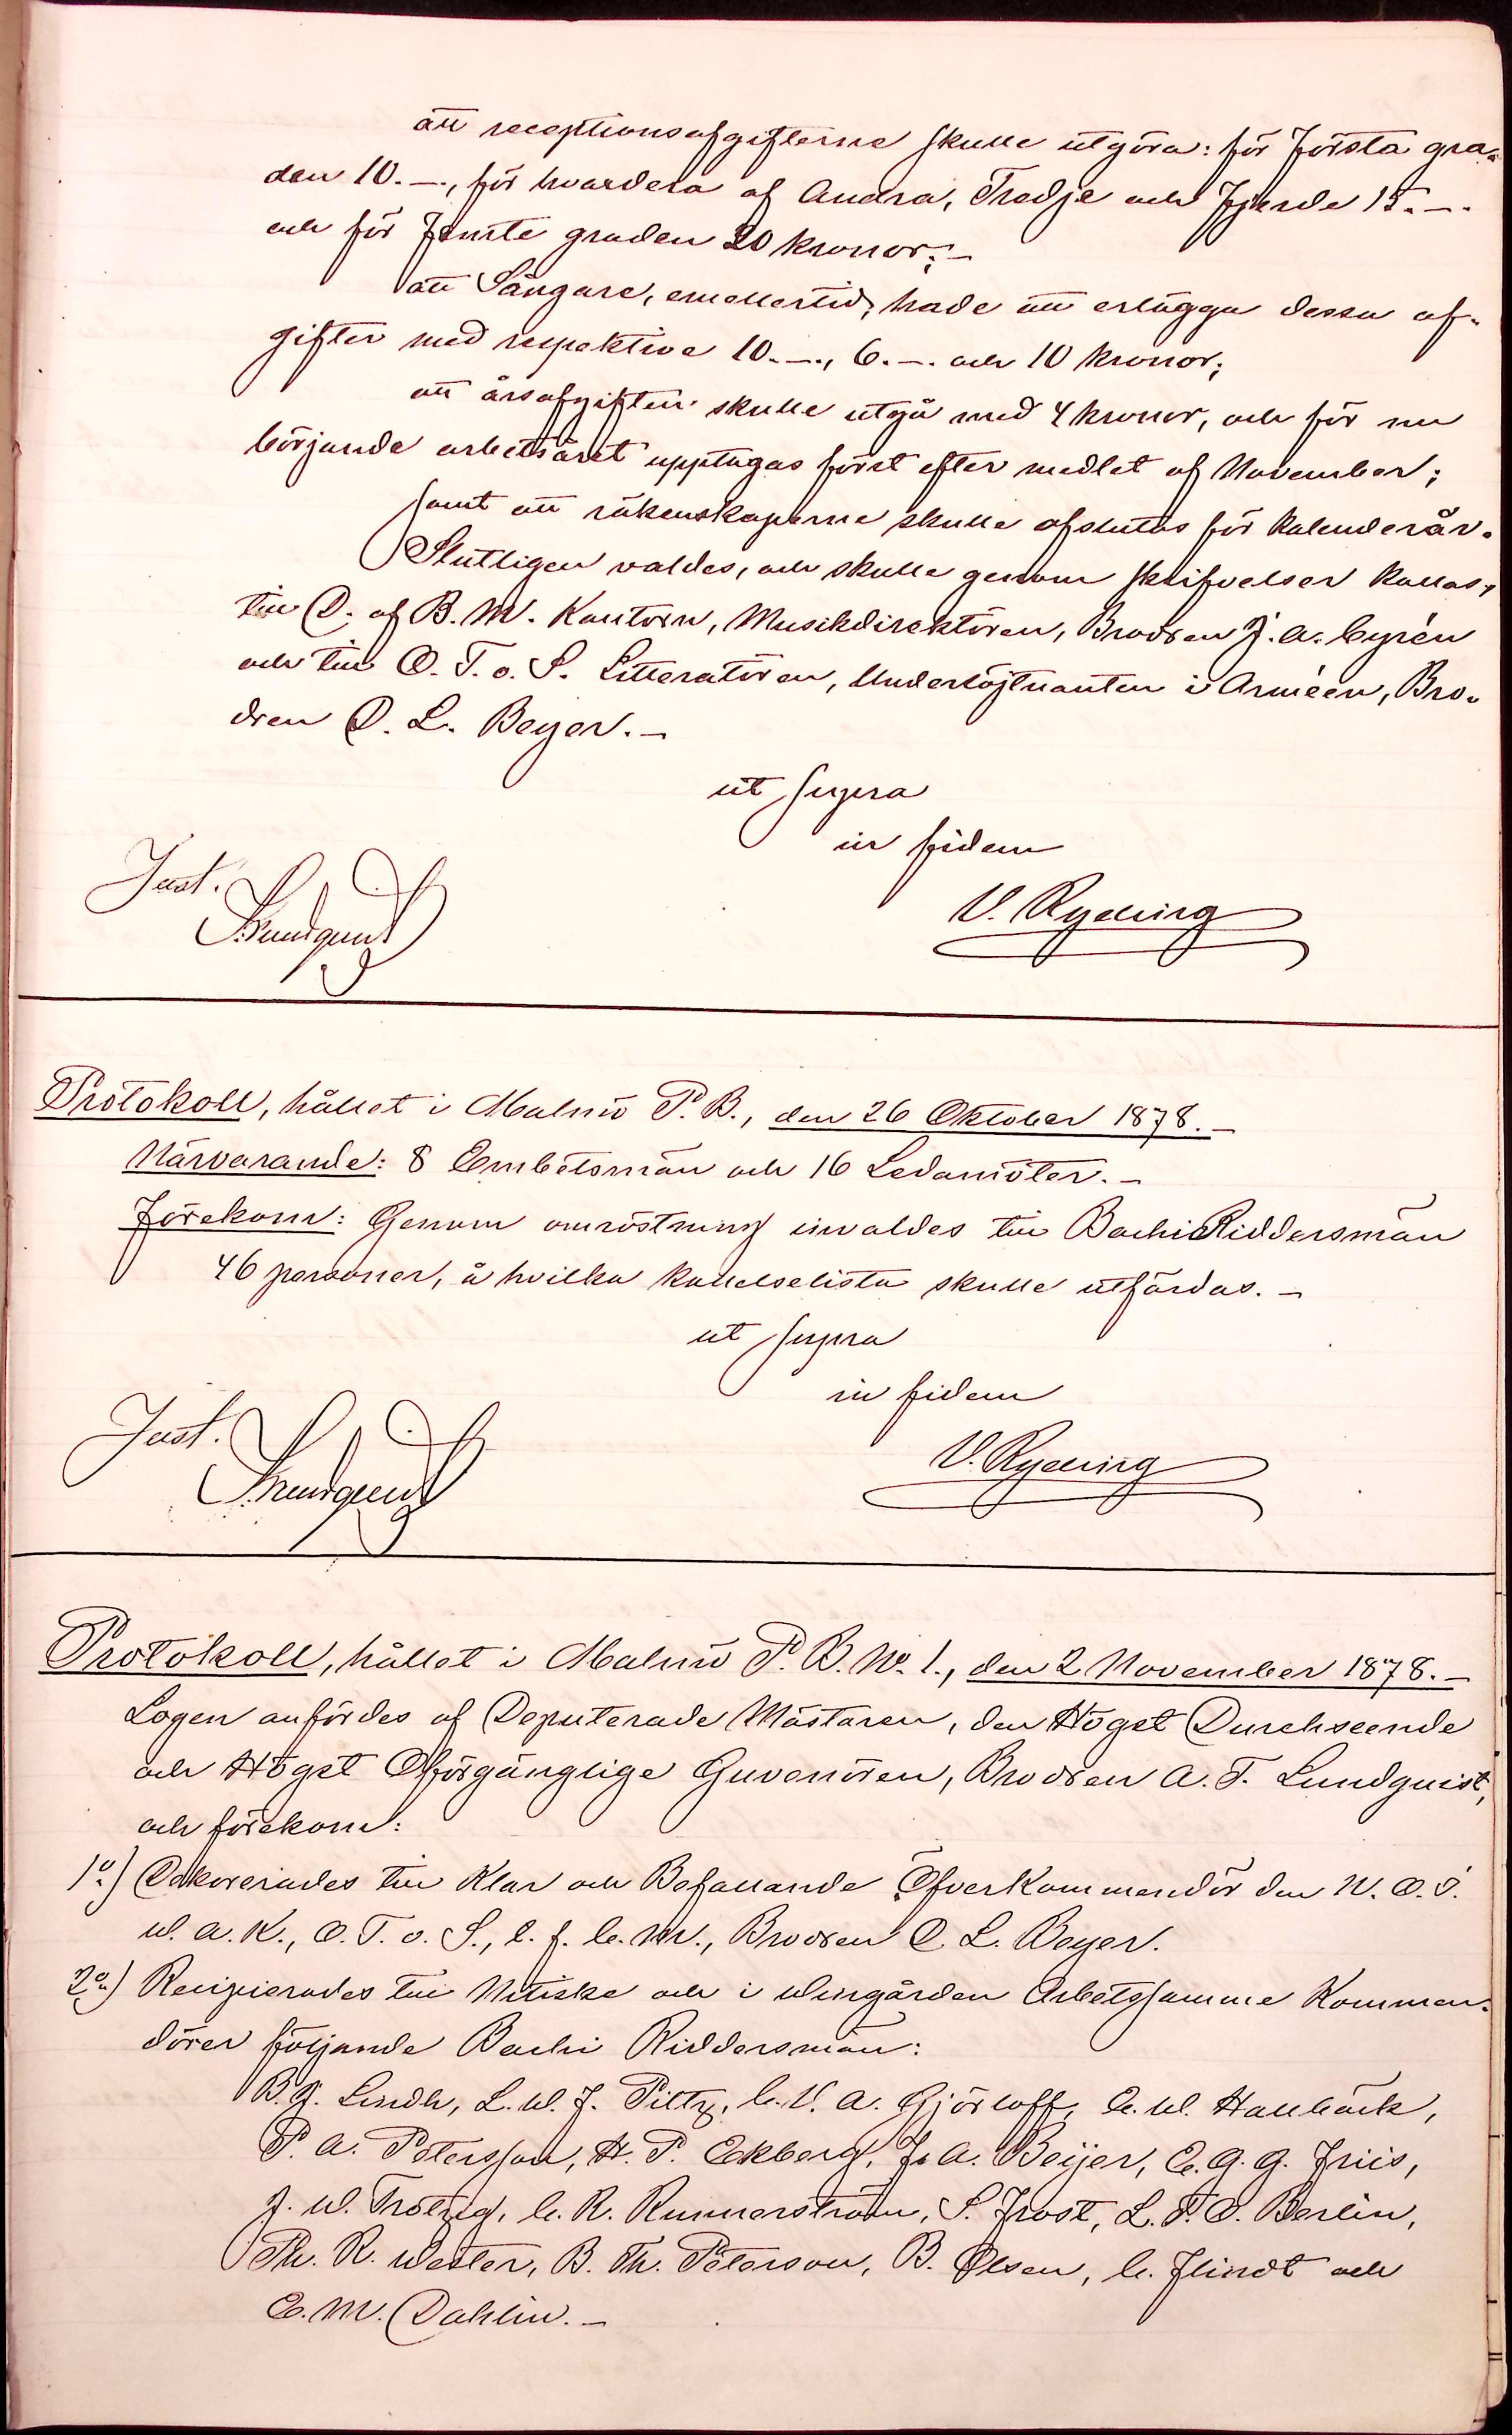 att receptionsafgifterne skulle utgöra: för Första gra-
den 10.–., för hvardera af Andra, Tredje och Fjerde 15.–.
och för Femte graden 20 kronor;–
att Sångare, emellertid, hade att erlägga dessa af-
gifter med respektive 10.–., 6.–. och 10 kronor;
att årsafgiften skulle utgå med 4 kronor, och för nu
börjande arbetsåret upptagas först efter medlet af November;
samt att räkenskaperne skulle afslutas för Kalenderår.
Slutligen valdes, och skulle genom skrifvelser kallas,
till D. af B. M. Kantorn, Musikdirektören, Brodren J. A. Cyrén
och till O. T. o. S. Litteratören, Underlöjtnanten i Arméen, Bro-
dren O. L. Beyer.–
ut supra
in fidem
Just.
V. Rydling
Lundquist
Protokoll, hållet i Malmö P. B., den 26 Oktober 1878.–
Närvarande: 8 Embetsmän och 16 Ledamöter.–
Förekom: Genom omröstning invaldes till Bachi Riddersmän
46 personer, å hvilka kallelselista skulle utfärdas.–
ut supra
in fidem
Just.
V. Rydling
Lundquist
Protokoll, hållet i Malmö P. B. No. 1., den 2 November 1878.–
Logen anfördes af Deputerade Mästaren, den Högst Durchseende
och Högst Oförgänglige Guvenören, Brodren A. T. Lundquist,
och förekom:
1o.) Dekorerades till Klar och Befallande Öfverkommendör den N. O. I.
W. A. K., O. T. o. S., l. f. C. M., Brodren O. L. Beyer.
2o.) Recipierades till Nitiske och i Wingården Arbetssamme Kommen-
dörer följande Bachi Riddersmän:
B. J. Lindh, L. W. F. Piltz, C. V. A. Gjörloff, C. W. Hallbäck,
P. A. Petersson, H. P. Eckberg, J. A. Beijer, C. G. G. Friis,
J. W. Trotzig, C. R. Runnerström, S. Frost, L. P. O. Berlin,
Th. R. Wester, B. Th. Peterson, B. Olsen, C. Flindt och
C. M. Dahlin.–